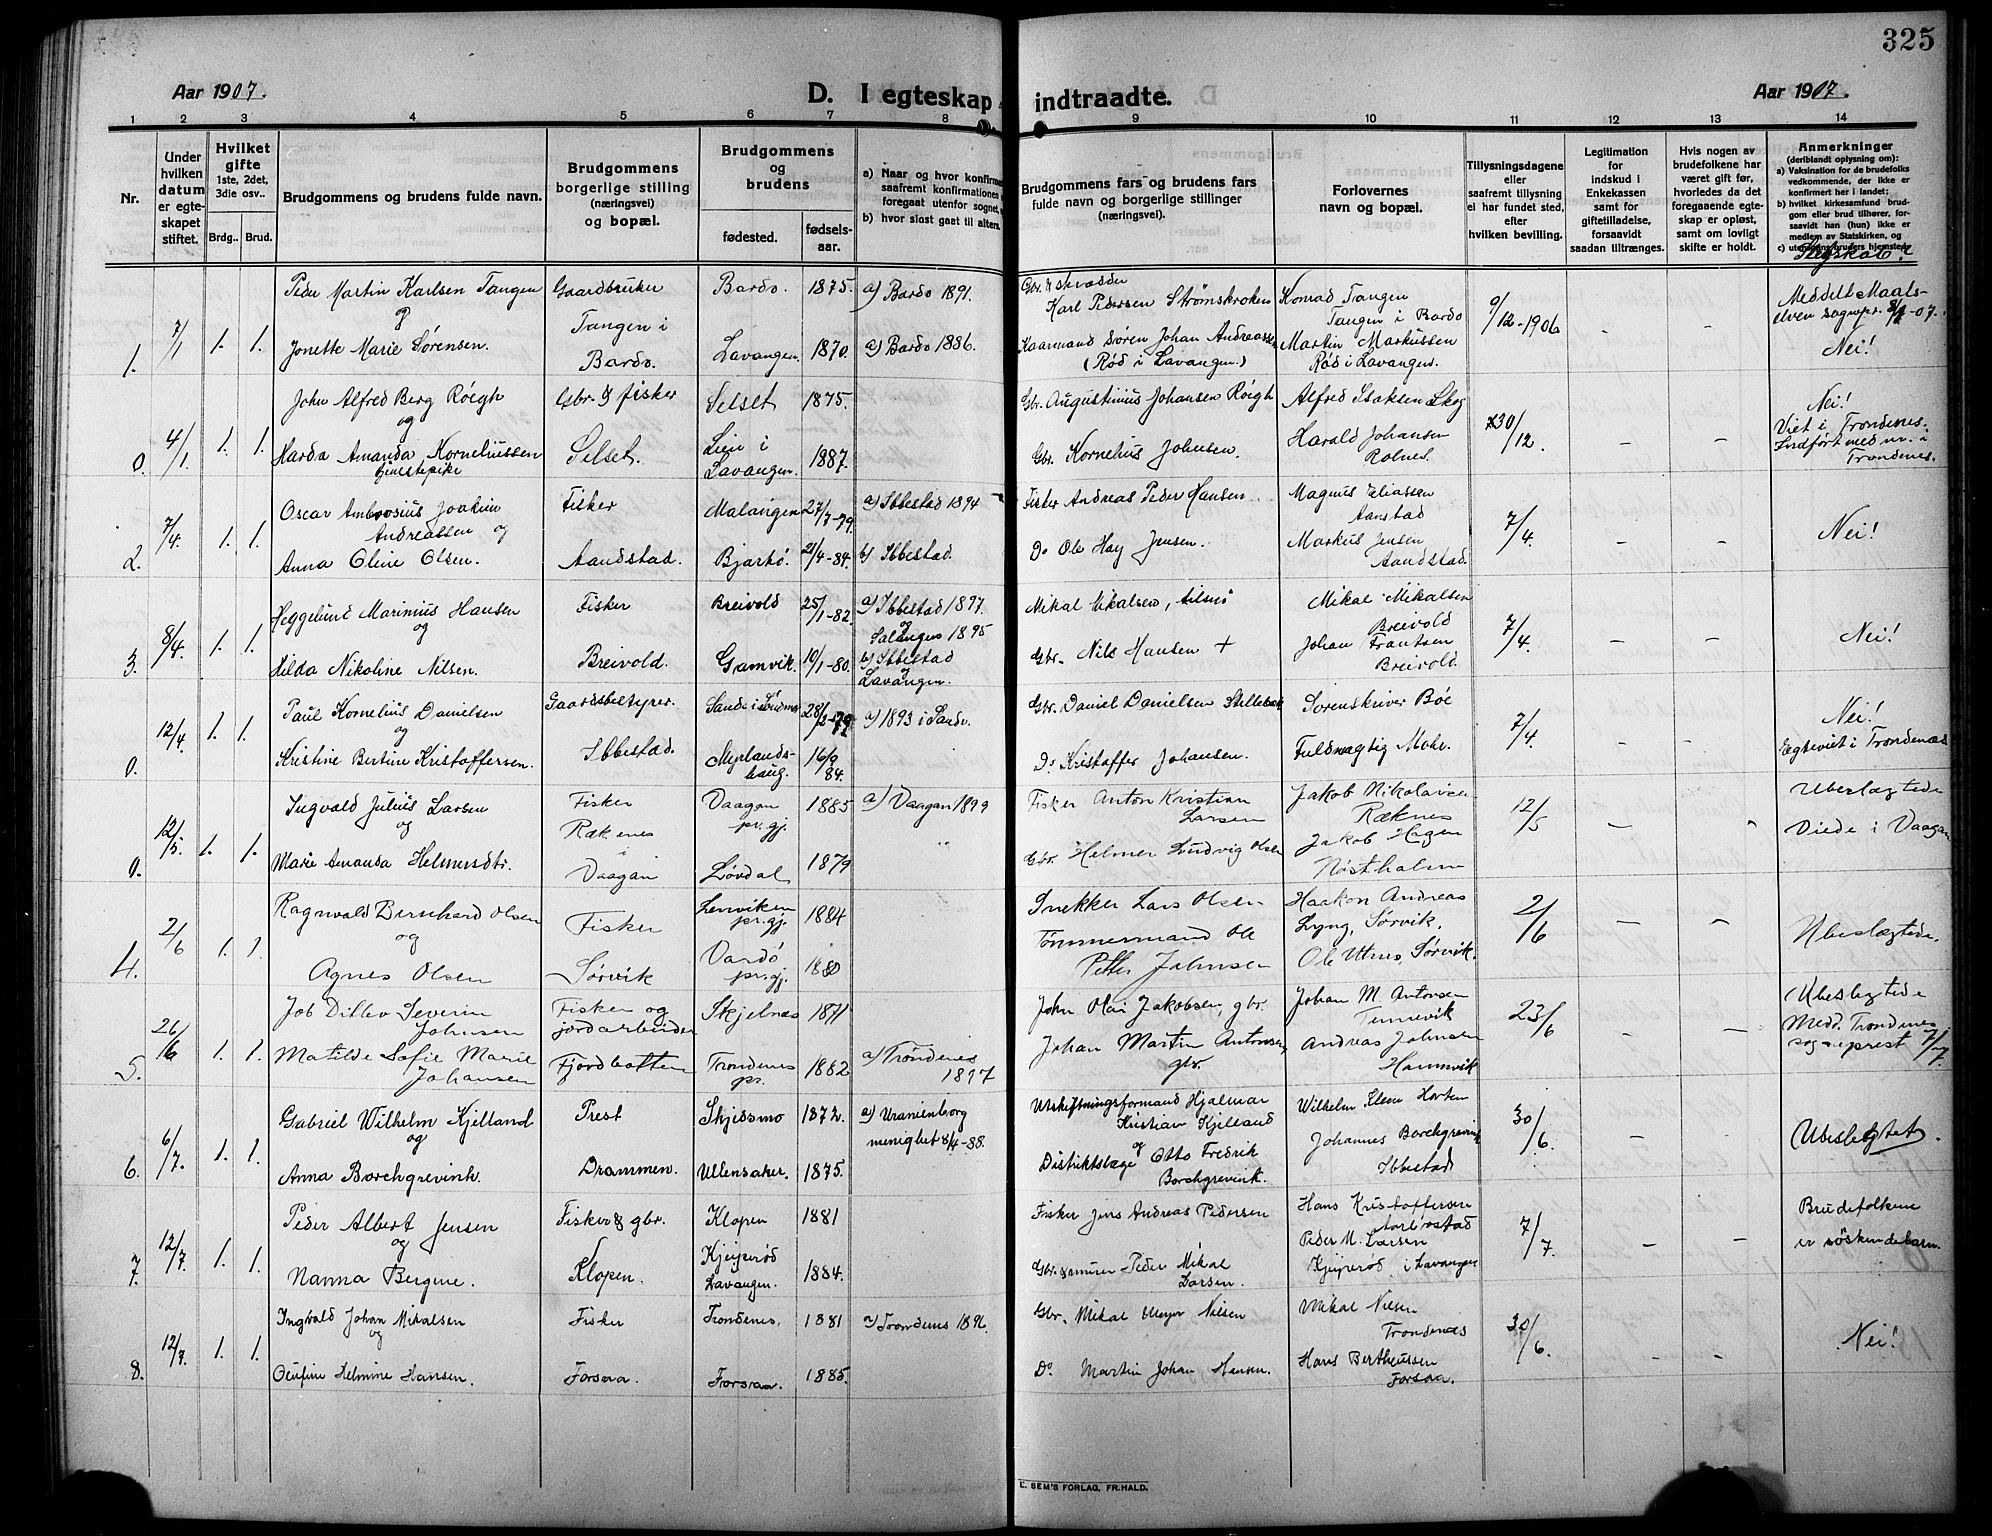 325
Aar 1907.
D. I egteskap indtraadte.
Aar 1907.
1 2 3 4 5 6 7 8 9 10 11 12 13 14
Nr.
Under hvilken datum er egteskapet stiftet.
Hvilket gifte 1ste, 2det, 3die osv..
Brdg.. Brud.
Brudgommens og brudens fulde navn.
Brudgommens borgerlige stilling (næringsvei) og bopæl.
Brudgommens og brudens
fødested. fødselsaar.
a) Naar og hvor konfirme
saafremt konfirmationen
foregaat utenfor sognet,
b) hvor sidst gaat til alters.
Brudgommens fars og brudens fars fulde navn og borgerlige stillinger (næringsvei).
Forlovernes navn og bopæl.
Tillysningsdagene eller saafremt tillysning ei har fundet sted, efter hvilken bevilling.
Legitimation for indskud i Enkekassen samt for giftetilladelse, forsaavidt saadan tiltrænges.
Hvis nogen av brudefolkene har været gift før, hvorledes da det foregaaende egteskap er opløst, samt om lovligt skifte er holdt.
Anmerkninger (deriblandt oplysning om):
a) Vaksination for de brudefolks vedkommende, der ikke er konfirmert her i landet;
b) hvilket kirkesamfund brudgom eller brud tilhører, forsaavidt han (hun) ikke er medlem av Statskirken, og
c)
Slegskab?
1. 7/1 1. 1. Peder Martin Karlsen Tangen
og
Jonette Marie Sørensen.
Gaardbruker
Tangen i
Bardo.
Bardo. 1875. a) Bardo 1891.
Lavangen. 1870. a) Bardo 1886.
Karl Pedersen Strømskroken
Kaarmand Søren Johan Andreassen
(Rød i Lavangen.)
Konrad Tangen
Tangen i Bardo
Martin Markussen
Rød i Lavangen.
9/12-1906 - -
Meddelt Maalselven sognepr. 8/1-07.
Nei!
0. 4/1 1. 1. John Alfred Berg Røigh
og
Harda Amanda Korneliussen
tjenestepike
Gbr. & fisker
Selset.
Selset 1875.
Lien i
Lavangen. 1887.
Gbr. Augustinius Johansen Røigh
Gbr. Kornelius Johnsen.
Alfred Isaksen Skog
Harald Johansen
Rolnes.
30/12. - -
Nei!
Viet i Trondenes.
Indført med nr. i
Trondenes.
2. 7/4. 1. 1. Oscar Ambrosius Joakim
Andreassen og
Anna Oline Olsen.
Fisker
Aandstad.
Malangen 27/7-79. a) Ibbestad 1894
Bjarkö. 21/4-84. b) Ibbestad.
Fisker Andreas Peder Hansen.
Do Ole Hay Jensen.
Magnus Eliassen
Aanstad
Markus Jensen
Aandstad.
7/4. - -
Nei!
3. 8/4. 1. 1. Heggelund Marinius Hansen
og
Hilda Nikoline Nilsen.
Fisker
Breivold.
Breivold 25/1-82. a) Ibbestad 1897.
og
Salangen 1895
Gamvik. 10/1-80. b) Ibbestad
Lavangen.
Mikal Mikalsen,
Gbr. Nils Hansen +
Mikal Mikalsen
Breivold
Johan Frantsen
Breivold.
7/4. - -
Nei!
0. 12/4. 1. 1. Paul Kornelius Danielsen
og
Kristine Bertine Kristoffersen.
Gaardsbestyrer.
Ibbestad.
Sande i Söndmør 28/2-79 a) 1893 i Sande.
Myrlandshaug. 16/9 84.
Gbr. Daniel Danielsen
Do Kristoffer Johansen.
Sorenskriver Bøe
Fuldmægtig Mohr.
7/4. - -
Nei!
Egteviet i Trondenæs
0. 12/5. 1. 1. Ingvald Julius Larsen
og
Marie Amanda Helmersdtr.
Fisker
Ræknes
i
Vaagan
Vaagan
pr.gj. 1885 a) Vaagan 1899
Løvdal 1879
Fisker Anton Kristian
Larsen
Gbr. Helmer Ludvig Olsen
Jakob Nikolaisen
Ræknes
Jakob Hagen
Nøstholmen
12/5 - -
Ubeslægtede
Viede i Vaagan
4. 2/6 1. 1. Ragnvald Bernhard Olsen
og
Agnes Olsen
Fisker
Sørvik
Lenviken
pr.gj. 1884
Vardö
pr.gj. 1880
Snekker Lars Olsen
Tømmermand Ole
Petter Johnsen
Haakon Andreas
Lyng, Sørvik,
Ole Utnes, Sørvik.
2/6 - -
Ubeslægtede.
5. 26/6 1. 1. Job Ditlev Severin
Johnsen
Matilde Sofie Marie
Johansen
Fisker og
jordarbeider
Fjordbotten
Skjelnes 1871
Trondenes
pr. 1882 a) Trondenes
1897
John Olai Jakobsen, gbr.
Johan Martin Antonsen,
gbr.
Johan M. Antonsen
Tennevik
Andreas Johnsen
Hamnvik
23/6 - -
Ubeslegtede
Medd. Trondenes
sogneprest 7/7
6. 6/7. 1. 1. Gabriel Wilhelm Kjelland
og
Anna Borchgrevink.
Prest
Drammen.
Skjedsmo 1872. a) Uranienborg
menighet 8/4-88.
Ullensaker. 1875.
Utskiftningsformand Hjalmar
Kristian Kjelland
og
Distriktslæge Otto Fredrik
Borchgrevink.
Wilhelm Klem Horten
Johannes Borchgrevink
Ibbestad
30/6. - -
Ubeslegtet.
7. 12/7. 1. 1. Peder Albert Jensen
og
Nanna Bergine.
Fisker & gbr.
Klopen.
Klopen 1881
Kjeiperød
Lavangen. 1884.
Fisker Jens Andreas Pedersen
Gbr. & murer Peder Mikal
Larsen.
Hans Kristoffersen
Peder M. Larsen
Kjeiperød, i Lavangen
7/7. - -
Brudefolkene
er søskendebarn.
8. 12/7. 1. 1. Ingvald Johan Mikalsen
og
Olufine Helmine Hansen.
Fisker
Forsaa.
Trondenes. 1881 a) Trondenes 1896.
Forsaa. 1885.
Gbr. Mikal Meyer Nilsen
Do Martin Johan Hansen.
Mikal Nilsen
Trondenes
Hans Bertheussen
Forsaa.
30/6. - -
Nei!
E. SEM'S FORLAG, FR.HALD.